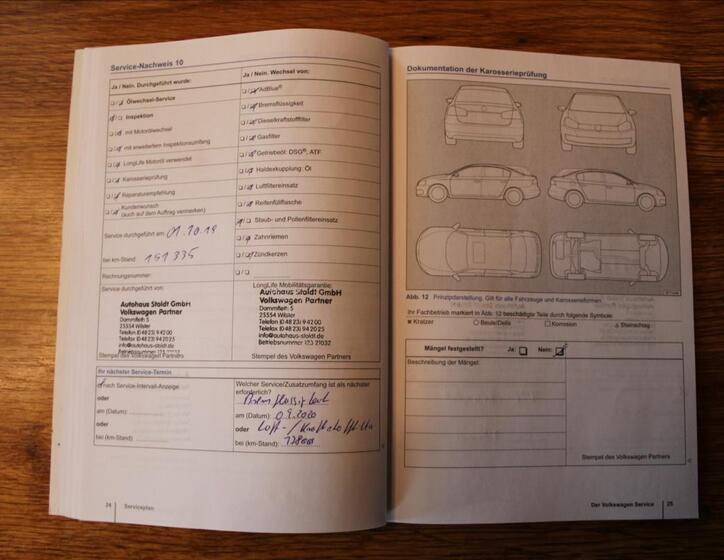 Service-Nachweis 10
Ja / Nein. Durchgeführt wurde:
Ölwechsel-Service
Inspektion
mit Motorölwechsel
mit erweitertem Inspektionsumfang
LongLife Motoröl verwendet
Karosserieprüfung
Reparaturempfehlung
Kundenwunsch
(auch auf dem Auftrag vermerken)
Service durchgeführt am: 01.10.19
bei km-Stand: 151335
Rechnungsnummer:
Service durchgeführt von:
Autohaus Staldt GmbH
Volkswagen Partner
Dammfleth 5
25554 Wilster
Telefon (0 48 23) 9 42 00
Telefax (0 48 23) 94 20 25
info@autohaus-staldt.de
Betriebsnummer 123 21032
Stempel des Volkswagen Partners
Ja / Nein. Wechsel von:
AdBlue®
Bremsflüssigkeit
Dieselkraftstofffilter
Gasfilter
Getriebeöl: DSG®, ATF
Haldexkupplung: Öl
Luftfiltereinsatz
Reifenfüllflasche
Staub- und Pollenfiltereinsatz
Zahnriemen
Zündkerzen
LongLife Mobilitätsgarantie:
Autohaus Staldt GmbH
Volkswagen Partner
Dammfleth 5
25554 Wilster
Telefon (0 48 23) 9 42 00
Telefax (0 48 23) 94 20 25
info@autohaus-staldt.de
Betriebsnummer 123 21032
Stempel des Volkswagen Partners
Ihr nächster Service-Termin
nach Service-Intervall-Anzeige
oder
am (Datum):
oder
bei (km-Stand):
Welcher Service/Zusatzumfang ist als nächster
erforderlich?
Bremsflüssigkeit
am (Datum): 09.2020
oder Luft-/
bei (km-Stand):
24 Serviceplan
Dokumentation der Karosserieprüfung
Abb. 12 Prinzipdarstellung. Gilt für alle Fahrzeuge und Karosserieformen.
Ihr Fachbetrieb markiert in Abb. 12 beschädigte Teile durch folgende Symbole:
Kratzer Beule/Delle Korrosion Steinschlag
Mängel festgestellt? Ja: Nein:
Beschreibung der Mängel:
Stempel des Volkswagen Partners
Der Volkswagen Service 25